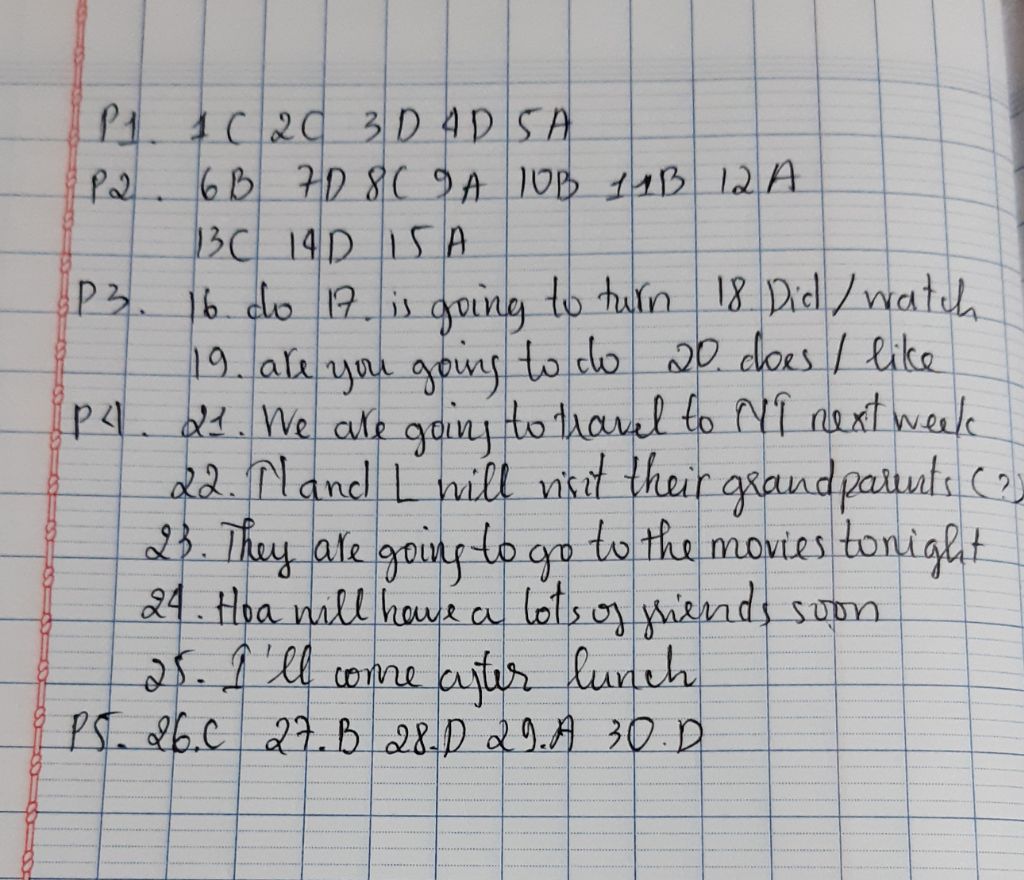 P1. 1C 2C 3D 4D 5A
P2. 6B 7D 8C 9A 10B 11B 12A
13C 14D 15A
P3. 16. do 17. is going to turn 18. Did / watch
19. are you going to do 20. does / like
P4. 21. We are going to travel to NT next week
22. N and L will visit their grandparents (?)
23. They are going to go to the movies tonight
24. Hoa will have a lots of friends soon
25. I'll come after lunch
P5. 26.C 27.B 28.D 29.A 30.D